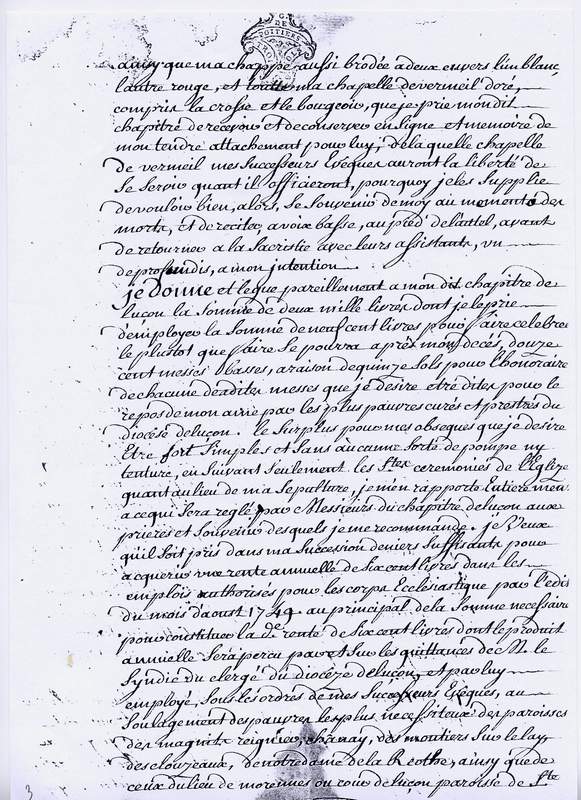 G
DE
POITIERS
ainsy que ma chappe aussi brodée a deux envers l'un blanc
l'autre rouge, et toutte ma chapelle de vermeil doré,
compris la crosse et le bourgeoir, que je prie mon dit
chapitre de recevoir et de conserver en signe et memoire de
mon tendre attachement pour luy, de la quelle chapelle
de vermeil mes successeurs Evêques auront la liberté de
se servir quant il officieront, pourquoy je les supplie
de vouloir bien, alors, se souvenir de moy au memento des
morts, et de reciter, a voix basse, au pied de lautel, avant
de retourner a la sacristie avec leurs assistants, un
de profundis, a mon intention
je donne et legue pareillement a mon dit chapitre de
luçon la somme de deux mille livres dont je le prie
d'employer la somme de neuf cent livres pour faire celebrer
le plustot que faire se pourra après mon decés, douze
cent messes basses, a raison de quinze sols pour l'honoraire
de chacune desdites messes que je desire etre dites pour le
repos de mon ame par les plus pauvres curés et prestres du
diocèse de luçon. le surplus pour mes obseques que je desire
Etre fort simples et sans aucune sorte de pompe ny
tenture, en suivant seulement les stes ceremonies de l'Eglize
quant au lieu de ma sepulture, je m'en rapporte Entierement
a ce qui sera reglé par Messieurs du chapitre de luçon aux
prieres et souvenir desquels je me recommande. je veux
qu'il soit pris dans ma succession deniers suffisants pour
acquerir une rente annuelle de six cent livres dans les
emplois authorisés pour les corps Ecclésiastique par l'edit
du mois d'aoust 1749 au principal de la somme necessaire
pour constituer la de rente de six cent livres dont le produit
annuelle sera perçu par et sur les quittances de M. le
syndic du clergé du diocèze de luçon, et par luy
employé, sous les ordres de mes successeurs Evêques, au
soulagement des pauvres les plus nécessiteux des paroisses
des magnils reigniers, chanay, des moutiers sur le lay
des clouzeaux, de notre dame de la Reothe, ainsy que de
ceux du lieu de moreilles ou cour de luçon paroisse de Ste